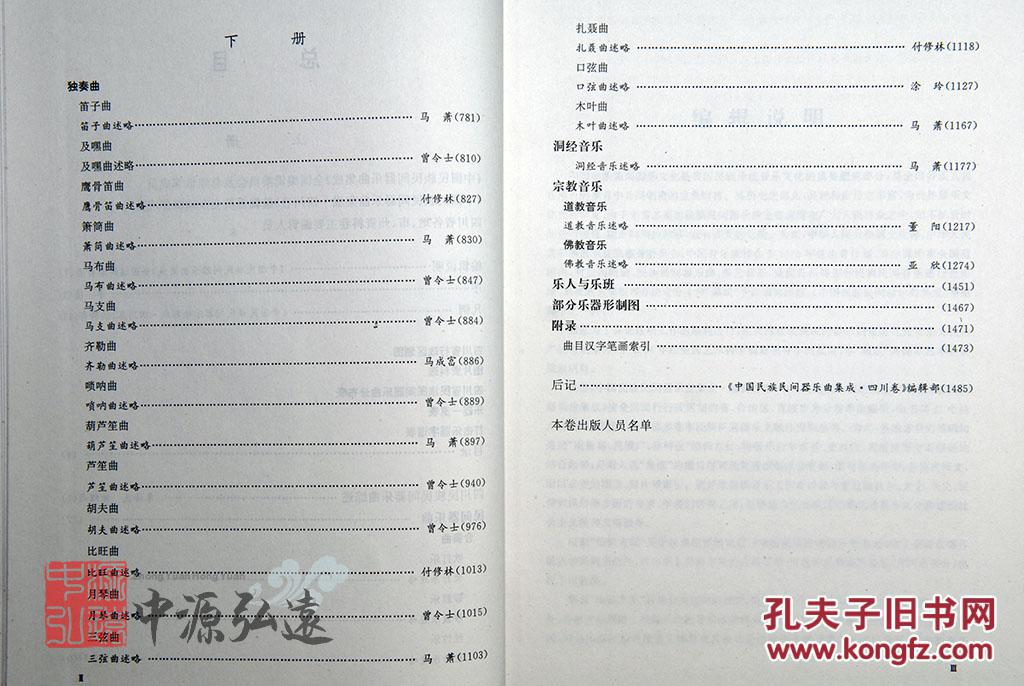 下 册
独奏曲
笛子曲
笛子曲述略 马 萧(781)
及嘿曲
及嘿曲述略 曾令士(810)
鹰骨笛曲
鹰骨笛曲述略 付修林(827)
箫筒曲
萧筒曲述略 马 萧(830)
马布曲
马布曲述略 曾令士(847)
马支曲
马支曲述略 曾令士(884)
齐勒曲
齐勒曲述略 马成富(886)
唢呐曲
唢呐曲述略 曾令士(889)
葫芦笙曲
葫芦笙曲述略 马 萧(897)
芦笙曲
芦笙曲述略 曾令士(940)
胡夫曲
胡夫曲述略 曾令士(976)
比旺曲
比旺曲述略 付修林(1013)
月琴曲
月琴曲述略 曾令士(1015)
三弦曲
三弦曲述略 马 萧(1103)
Ⅱ
扎聂曲
扎聂曲述略 付修林(1118)
口弦曲
口弦曲述略 涂 玲(1127)
木叶曲
木叶曲述略 马 萧(1167)
洞经音乐
洞经音乐述略 马 萧(1177)
宗教音乐
道教音乐
道教音乐述略 董 阳(1217)
佛教音乐
佛教音乐述略 亚 欣(1274)
乐人与乐班 (1451)
部分乐器形制图 (1467)
附录 (1471)
曲目汉字笔画索引 (1473)
后记 《中国民族民间器乐曲集成·四川卷》编辑部(1485)
本卷出版人员名单
Ⅲ
中源弘远
Zhong Yuan Hong Yuan
中源弘遠
孔夫子旧书网
www.kongfz.com